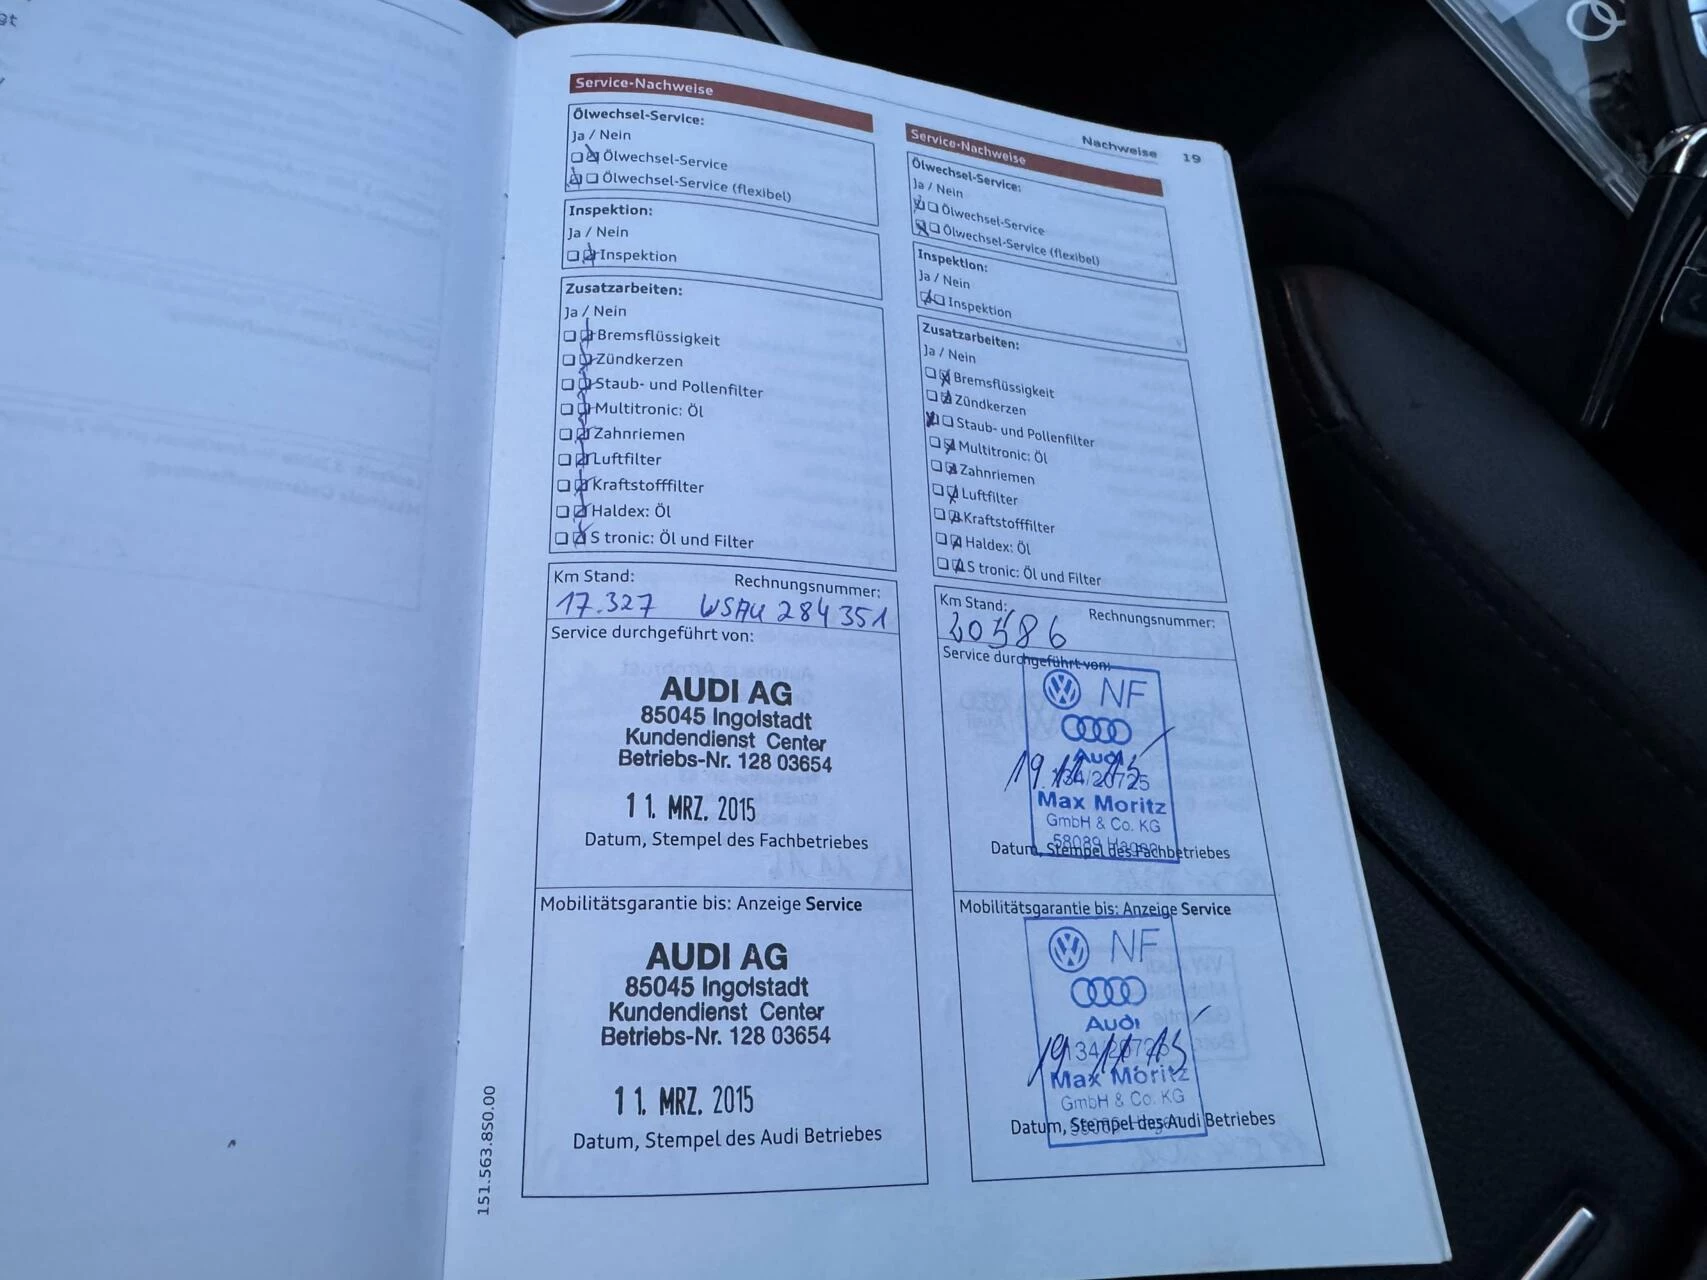 Nachweise 19
Service-Nachweise
Ölwechsel-Service:
Ja / Nein
Ölwechsel-Service
Ölwechsel-Service (flexibel)
Inspektion:
Ja / Nein
Inspektion
Zusatzarbeiten:
Ja / Nein
Bremsflüssigkeit
Zündkerzen
Staub- und Pollenfilter
Multitronic: Öl
Zahnriemen
Luftfilter
Kraftstofffilter
Haldex: Öl
S tronic: Öl und Filter
Km Stand: Rechnungsnummer:
17.327 WSAU 284351
Service durchgeführt von:
AUDI AG
85045 Ingolstadt
Kundendienst Center
Betriebs-Nr. 128 03654
11. MRZ. 2015
Datum, Stempel des Fachbetriebes
Mobilitätsgarantie bis: Anzeige Service
AUDI AG
85045 Ingolstadt
Kundendienst Center
Betriebs-Nr. 128 03654
11. MRZ. 2015
Datum, Stempel des Audi Betriebes
151.563.8S0.00
Service-Nachweise
Ölwechsel-Service:
Ja / Nein
Ölwechsel-Service
Ölwechsel-Service (flexibel)
Inspektion:
Ja / Nein
Inspektion
Zusatzarbeiten:
Ja / Nein
Bremsflüssigkeit
Zündkerzen
Staub- und Pollenfilter
Multitronic: Öl
Zahnriemen
Luftfilter
Kraftstofffilter
Haldex: Öl
S tronic: Öl und Filter
Km Stand: Rechnungsnummer:
20586
Service durchgeführt von:
NF
Audi
134/20725
19.11.15
Max Moritz
GmbH & Co. KG
58089 Hagen
Datum, Stempel des Fachbetriebes
Mobilitätsgarantie bis: Anzeige Service
NF
Audi
19.11.15
Max Moritz
GmbH & Co. KG
Datum, Stempel des Audi Betriebes